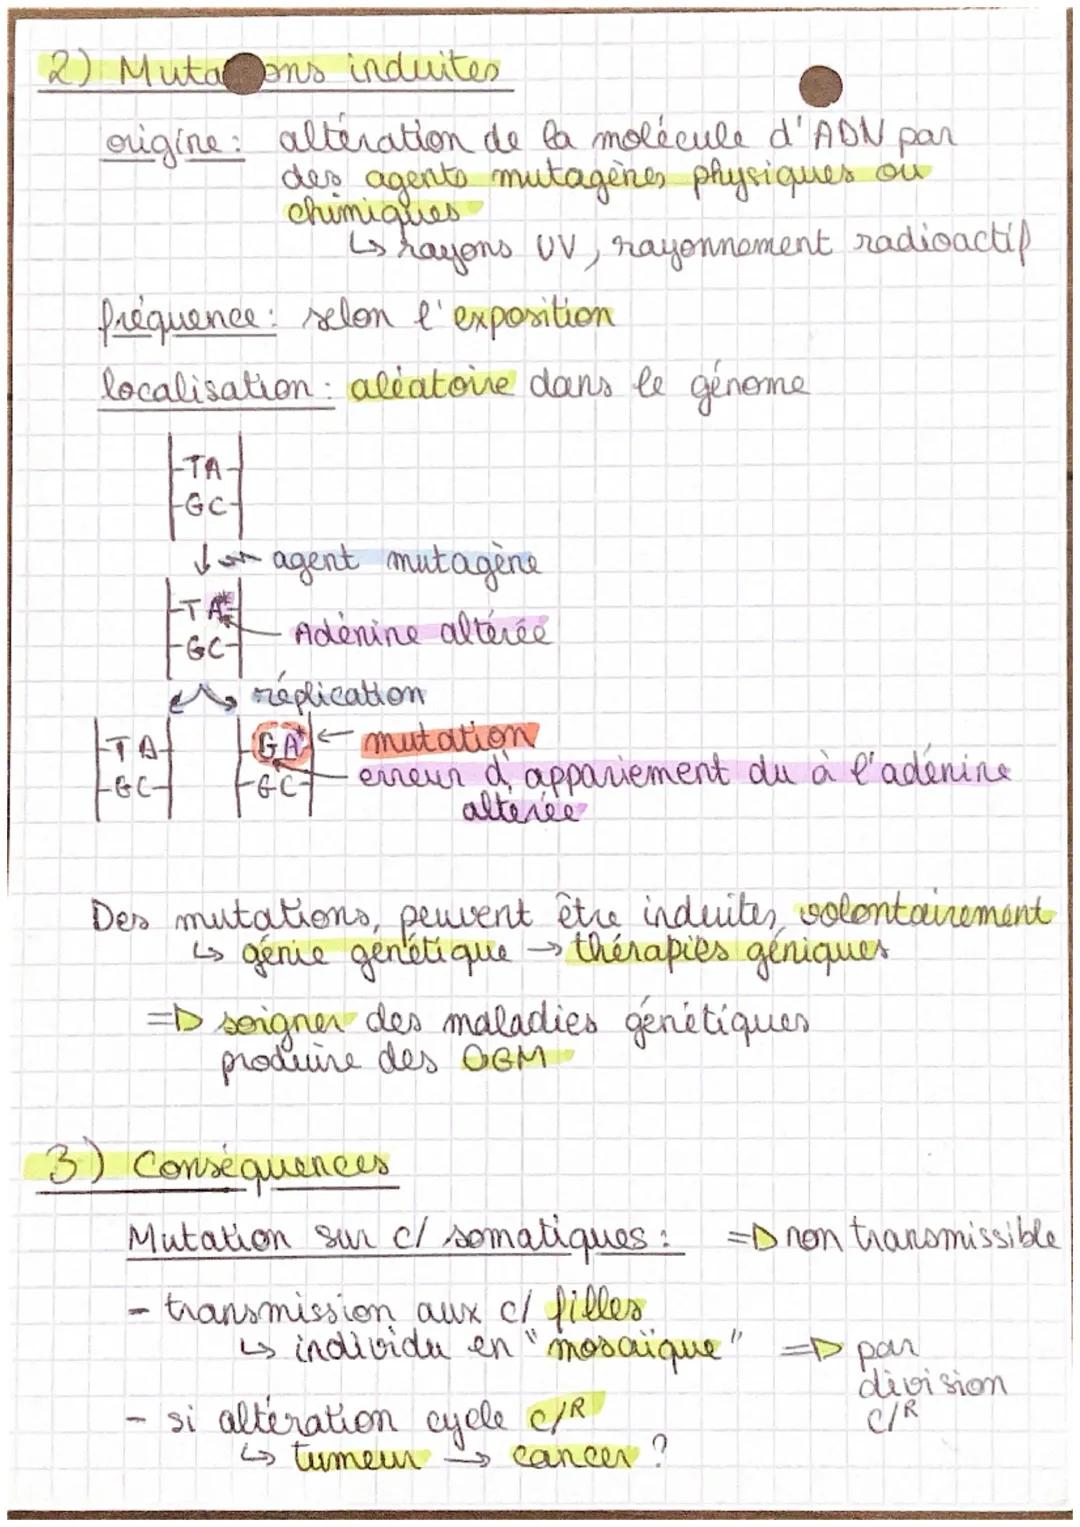 2) Mutations induites
origine : altération de la molécule d'ADN par
des agents mutagènes physiques ou
chimiques
↳ rayons UV, rayonnement radioactif
fréquence : selon l'exposition
localisation : aléatoire dans le génome
TA
GC
↓ agent mutagène
TA*
Adénine altérée
GC
réplication
TA GA* ← mutation
GC GC erreur d'appariement du à l'adénine
altérée
Des mutations, peuvent être induites, volontairement
↳ génie génétique → thérapies géniques
=> soigner des maladies génétiques
produire des OGM
3) Conséquences
Mutation sur c/ somatiques : => non transmissible
- transmission aux c/ filles
↳ individu en "mosaïque" => par
division
c/R
- si altération cycle c/R
↳ tumeur → cancer ?